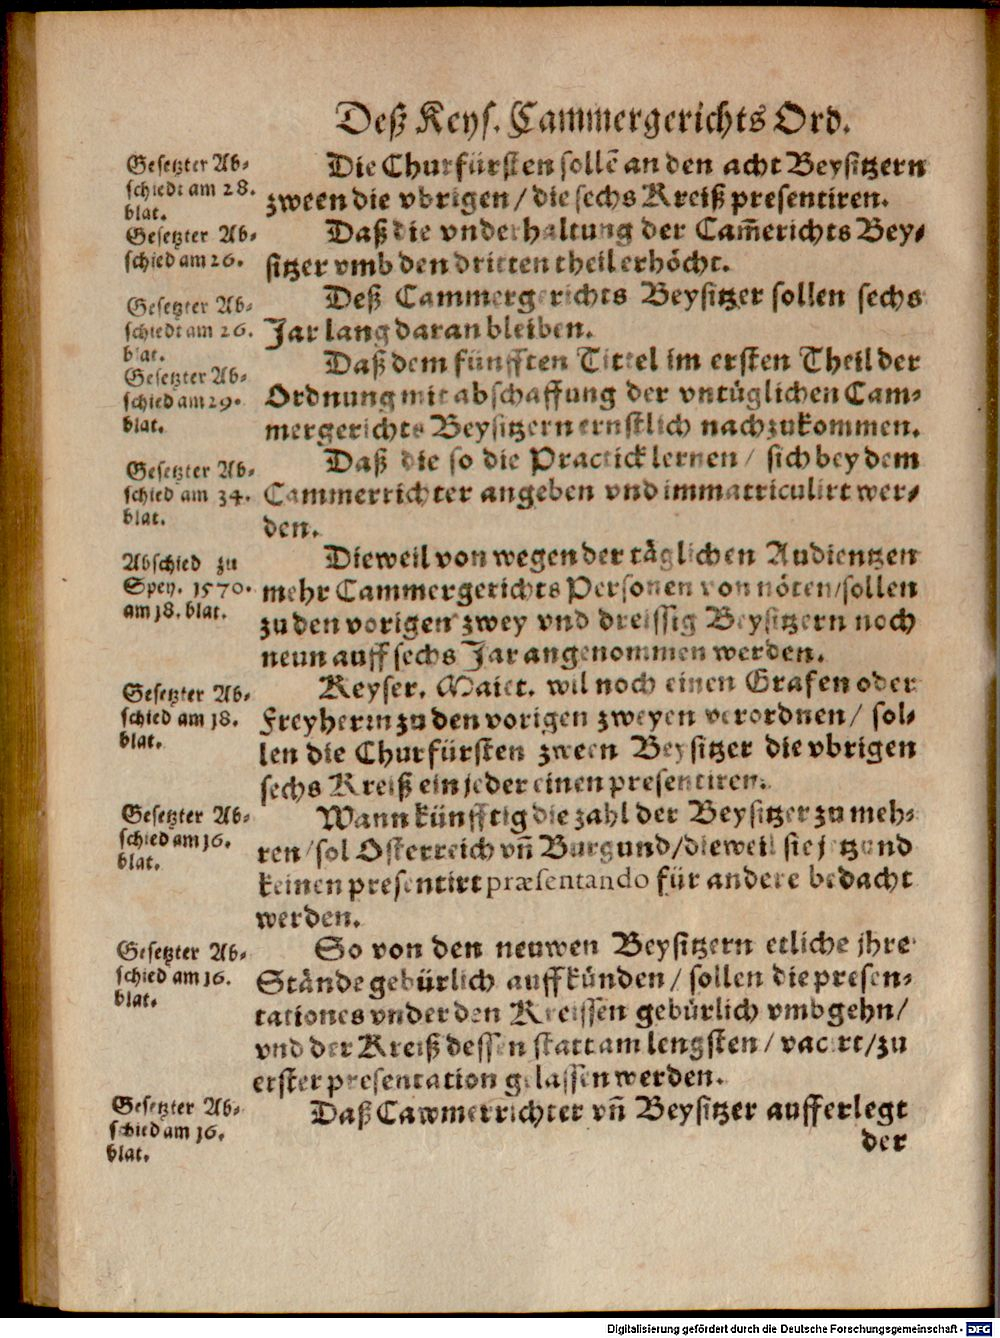 Deß Keys. Cammergerichts Ord.
Gesetzter Ab-
schiedt am 28.
blat.
Die Churfürsten sollē an den acht Beysitzern
zween die vbrigen / die sechs Kreiß presentiren.
Gesetzter Ab-
schied am 26.
Daß die vnderhaltung der Cam̄erichts Bey-
sitzer vmb den dritten theil erhöcht.
Gesetzter Ab-
schiedt am 26.
blat.
Deß Cammergerichts Beysitzer sollen sechs
Jar lang daran bleiben.
Gesetzter Ab-
schied am 29.
blat.
Daß dem fünfften Tittel im ersten Theil der
Ordnung mit abschaffung der vntüglichen Cam-
mergerichts Beysitzern ernstlich nachzukommen.
Gesetzter Ab-
schied am 34.
blat.
Daß die so die Practick lernen / sich bey dem
Cammerrichter angeben vnd immatriculirt wer-
den.
Abschied zu
Spey. 1570.
am 18. blat.
Dieweil von wegen der täglichen Audientzen
mehr Cammergerichts Personen von nöten / sollen
zu den vorigen zwey vnd dreissig Beysitzern noch
neun auff sechs Jar angenommen werden.
Gesetzter Ab-
schied am 18.
blat.
Keyser. Maiet. wil noch einen Grafen oder
Freyherrn zu den vorigen zweyen verordnen / sol-
len die Churfürsten zween Beysitzer die vbrigen
sechs Kreiß ein jeder einen presentiren.
Gesetzter Ab-
schied am 16.
blat.
Wann künfftig die zahl der Beysitzer zu meh-
ren / sol Osterreich vn̄ Burgund / dieweil sie jetzund
keinen presentirt præsentando für andere bedacht
werden.
Gesetzter Ab-
schied am 16.
blat.
So von den neuwen Beysitzern etliche jhre
Stände gebürlich auffkünden / sollen die presen-
tationes vnder den Kreissen gebürlich vmbgehn /
vnd der Kreiß dessen statt am lengsten / vacirt / zu
erster presentation gelassen werden.
Gesetzter Ab-
schied am 16.
blat.
Daß Cawmerrichter vn̄ Beysitzer aufferlegt
der
Digitalisierung gefördert durch die Deutsche Forschungsgemeinschaft - DFG